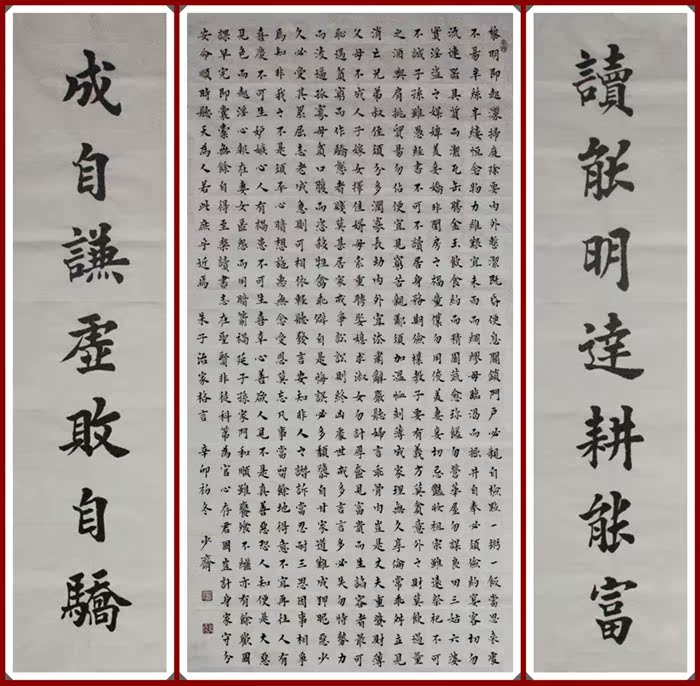 讀能明達耕能富
黎明即起灑掃庭除要內外整潔既昏便息關鎖門戶必親自檢點一粥一飯當思來處
不易半絲半縷恆念物力維艱宜未雨而綢繆毋臨渴而掘井自奉必須儉約宴客切勿
流連器具質而潔瓦缶勝金玉飲食約而精園蔬愈珍饈勿營華屋勿謀良田三姑六婆
實淫盜之媒婢美妾嬌非閨房之福童僕勿用俊美妻妾切忌豔妝祖宗雖遠祭祀不可
不誠子孫雖愚經書不可不讀居身務期儉樸教子要有義方莫貪意外之財莫飲過量
之酒與肩挑貿易勿佔便宜見窮苦親鄰須加溫恤刻薄成家理無久享倫常乖舛立見
消亡兄弟叔侄須分多潤寡長幼內外宜法肅辭嚴聽婦言乖骨肉豈是丈夫重資財薄
父母不成人子嫁女擇佳婿毋索重聘娶媳求淑女勿計厚奩見富貴而生諂容者最可
恥遇貧窮而作驕態者賤莫甚居家戒爭訟訟則終凶處世戒多言言多必失勿恃勢力
而凌逼孤寡毋貪口腹而恣殺牲禽乖僻自是悔誤必多頹隳自甘家道難成狎昵惡少
久必受其累屈志老成急則可相依輕聽發言安知非人之譖訴當忍耐三思因事相爭
焉知非我之不是須平心暗想施惠無念受恩莫忘凡事當留餘地得意不宜再往人有
喜慶不可生妒嫉心人有禍患不可生喜幸心善欲人見不是真善惡恐人知便是大惡
見色而起淫心報在妻女匿怨而用暗箭禍延子孫家門和順雖饔飧不繼亦有餘歡國
課早完即囊橐無餘自得至樂讀書志在聖賢非徒科第為官心存君國豈計身家守分
安命順時聽天為人若此庶乎近焉 朱子治家格言 辛卯初冬 少齋
成自謙虛敗自驕